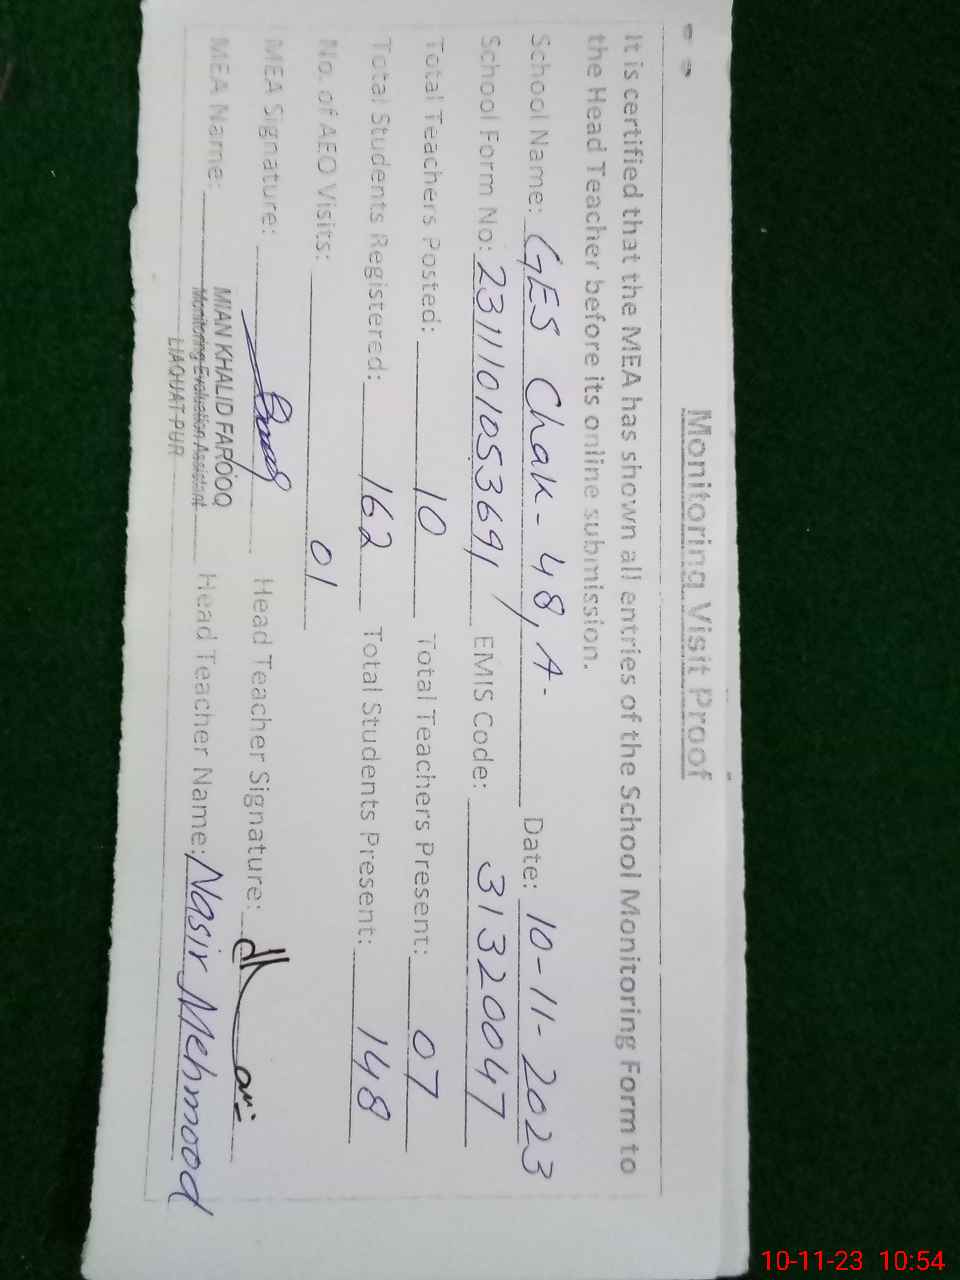 Monitoring Visit Proof
It is certified that the MEA has shown all entries of the School Monitoring Form to
the Head Teacher before its online submission.
School Name: GES Chak-48, A- Date: 10-11-2023
School Form No: 2311101053691 EMIS Code: 31320047
Total Teachers Posted: 10 Total Teachers Present: 07
Total Students Registered: 162 Total Students Present: 148
No. of AEO Visits: 01
MEA Signature: Head Teacher Signature:
MEA Name: MIAN KHALID FAROOQ Head Teacher Name: Nasir Mehmood
Monitoring Evaluation Assistant
LIAQUAT PUR
10-11-23 10:54